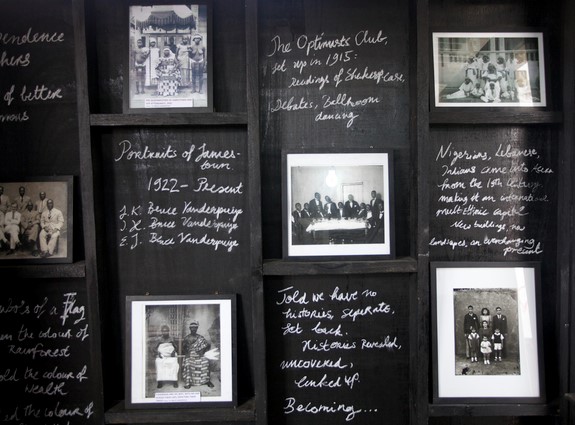 endence
hers
of better
The Optimists Club,
set up in 1915:
readings of Shakespeare
Debates, Ballroom
dancing
Portraits of James-
town
1922 - Present
J.K. Bruce Vanderpuije
I.K. Bruce Vanderpuije
E.J. Bruce Vanderpuije
Nigerians, Lebanese,
Indians came into town
from the 19th Century,
making it an international
multi ethnic capital
New buildings, new
landscapes, an everchanging
present
of a Flag
the colour of
rainforest
old the colour of
wealth
ed the colour of
Told we have no
histories, separate,
set back.
Histories revealed,
uncovered,
linked up.
Becoming...